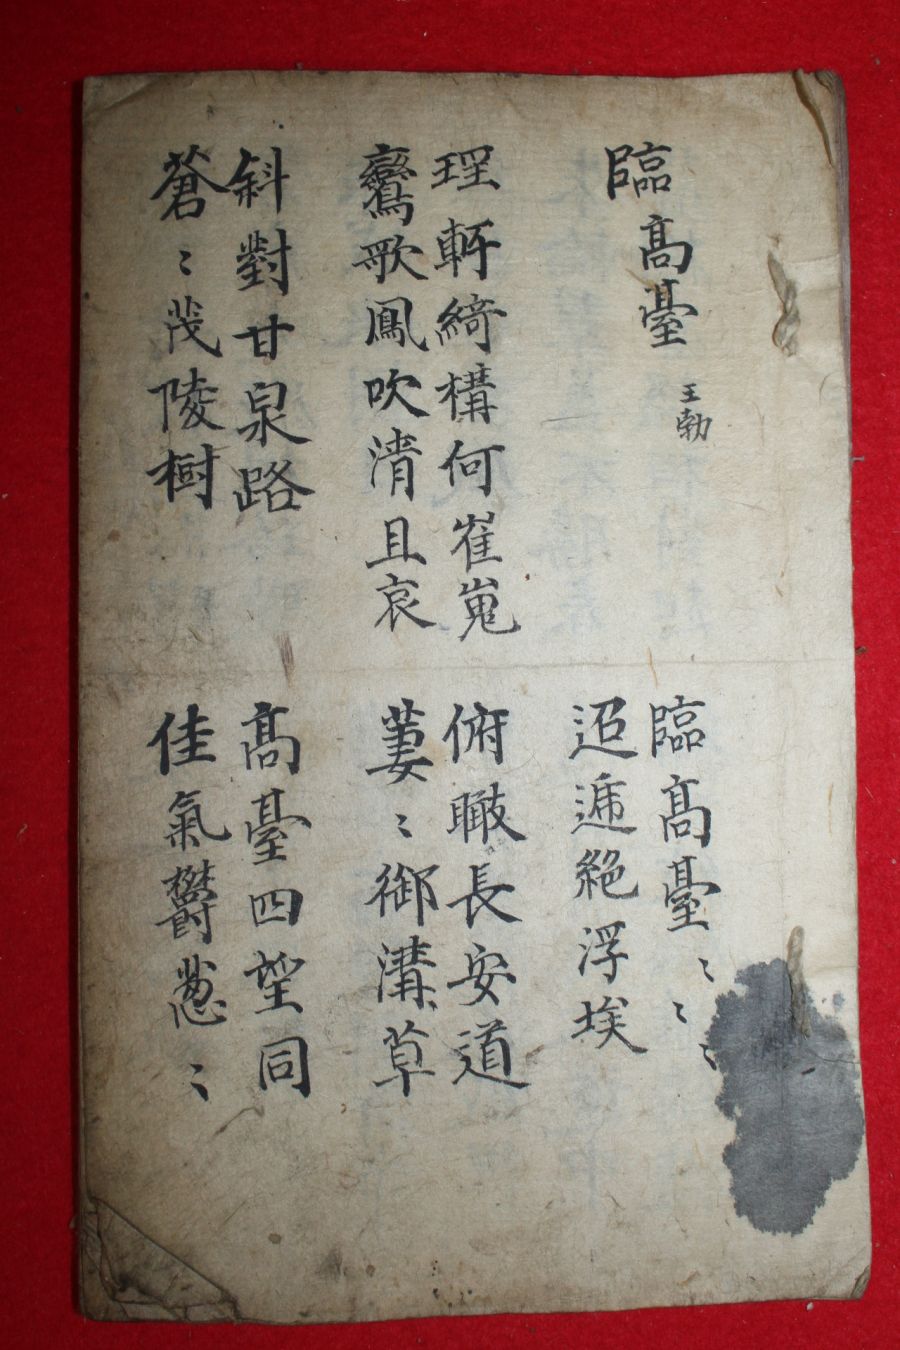 臨高臺
王勃
臨高臺〻〻〻
迢遞絶浮埃
理軒綺構何崔嵬
鸞歌鳳吹清且哀
俯瞰長安道
萋〻御溝草
斜對甘泉路
蒼〻茂陵樹
高臺四望同
佳氣欝葱〻